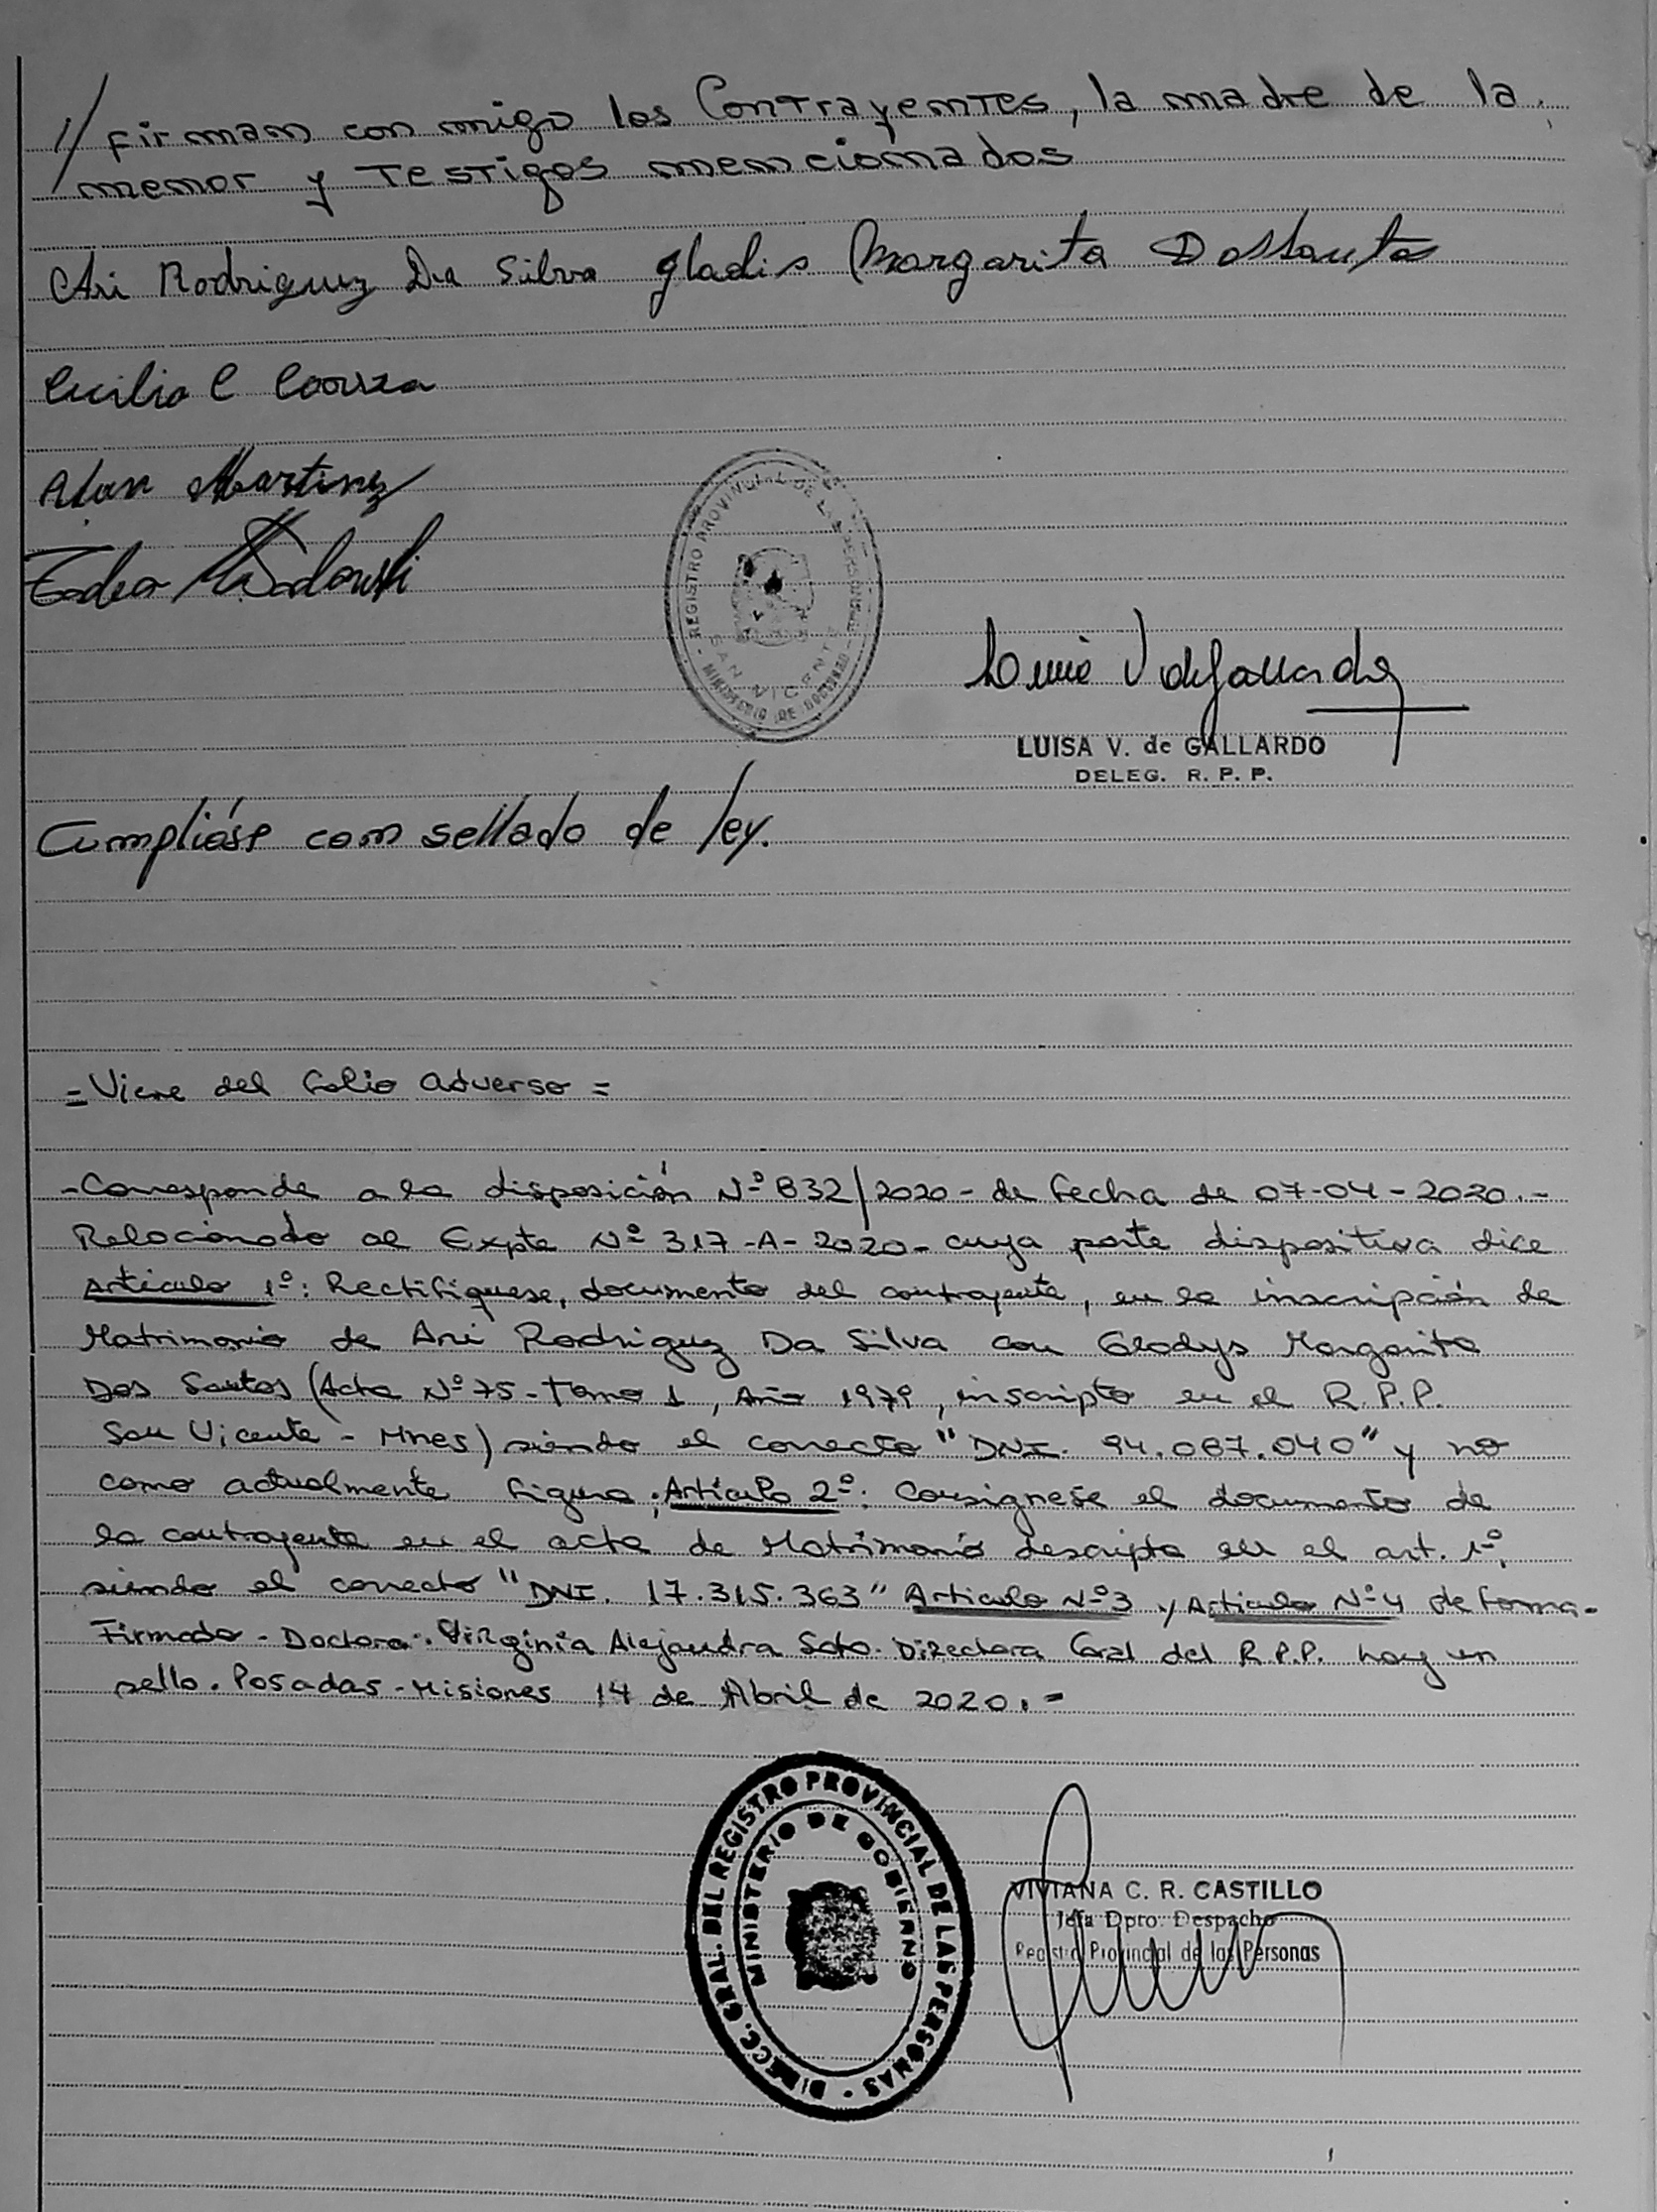 // firman con migo los Contrayentes, la madre de la
menor y Testigos mencionados
Ari Rodriguez Da Silva Gladis Margarita Dossantos
Alan Martinez
REGISTRO PROVINCIAL DE LAS PERSONAS
SAN VICENTE
MINISTERIO DE GOBIERNO
LUISA V. de GALLARDO
DELEG. R. P. P.
Cumplióse com sellado de ley.
= Viene del folio adverso =
- Corresponde a la disposición Nº 832/2020 - de fecha de 07-04-2020.-
Relacionado al Expte Nº 317-A-2020- cuya parte dispositiva dice
Articulo 1º: Rectifiquese, documento del contrayente, en la inscripción de
Matrimonio de Ari Rodriguez Da Silva con Gladys Margarita
Dos Santos (Acta Nº 75 - Tomo 1, Año 1979, inscripto en el R.P.P.
San Vicente - Mnes) siendo el correcto "DNI. 94.087.040" y no
como actualmente figura; Articulo 2º: Consignese el documento de
la contrayente en el acta de Matrimonio descripta en el art. 1º,
siendo el correcto "DNI. 17.315.363" Articulo Nº 3 y Articulo Nº 4 de forma.
Firmado - Doctora: Virginia Alejandra Soto. Directora Gral del R.P.P. hay un
sello. Posadas - Misiones 14 de Abril de 2020.=
DIRECC. GRAL. DEL REGISTRO PROVINCIAL DE LAS PERSONAS
MINISTERIO DE GOBIERNO
VIVIANA C. R. CASTILLO
Jefa Dpto. Despacho
Registro Provincial de las Personas